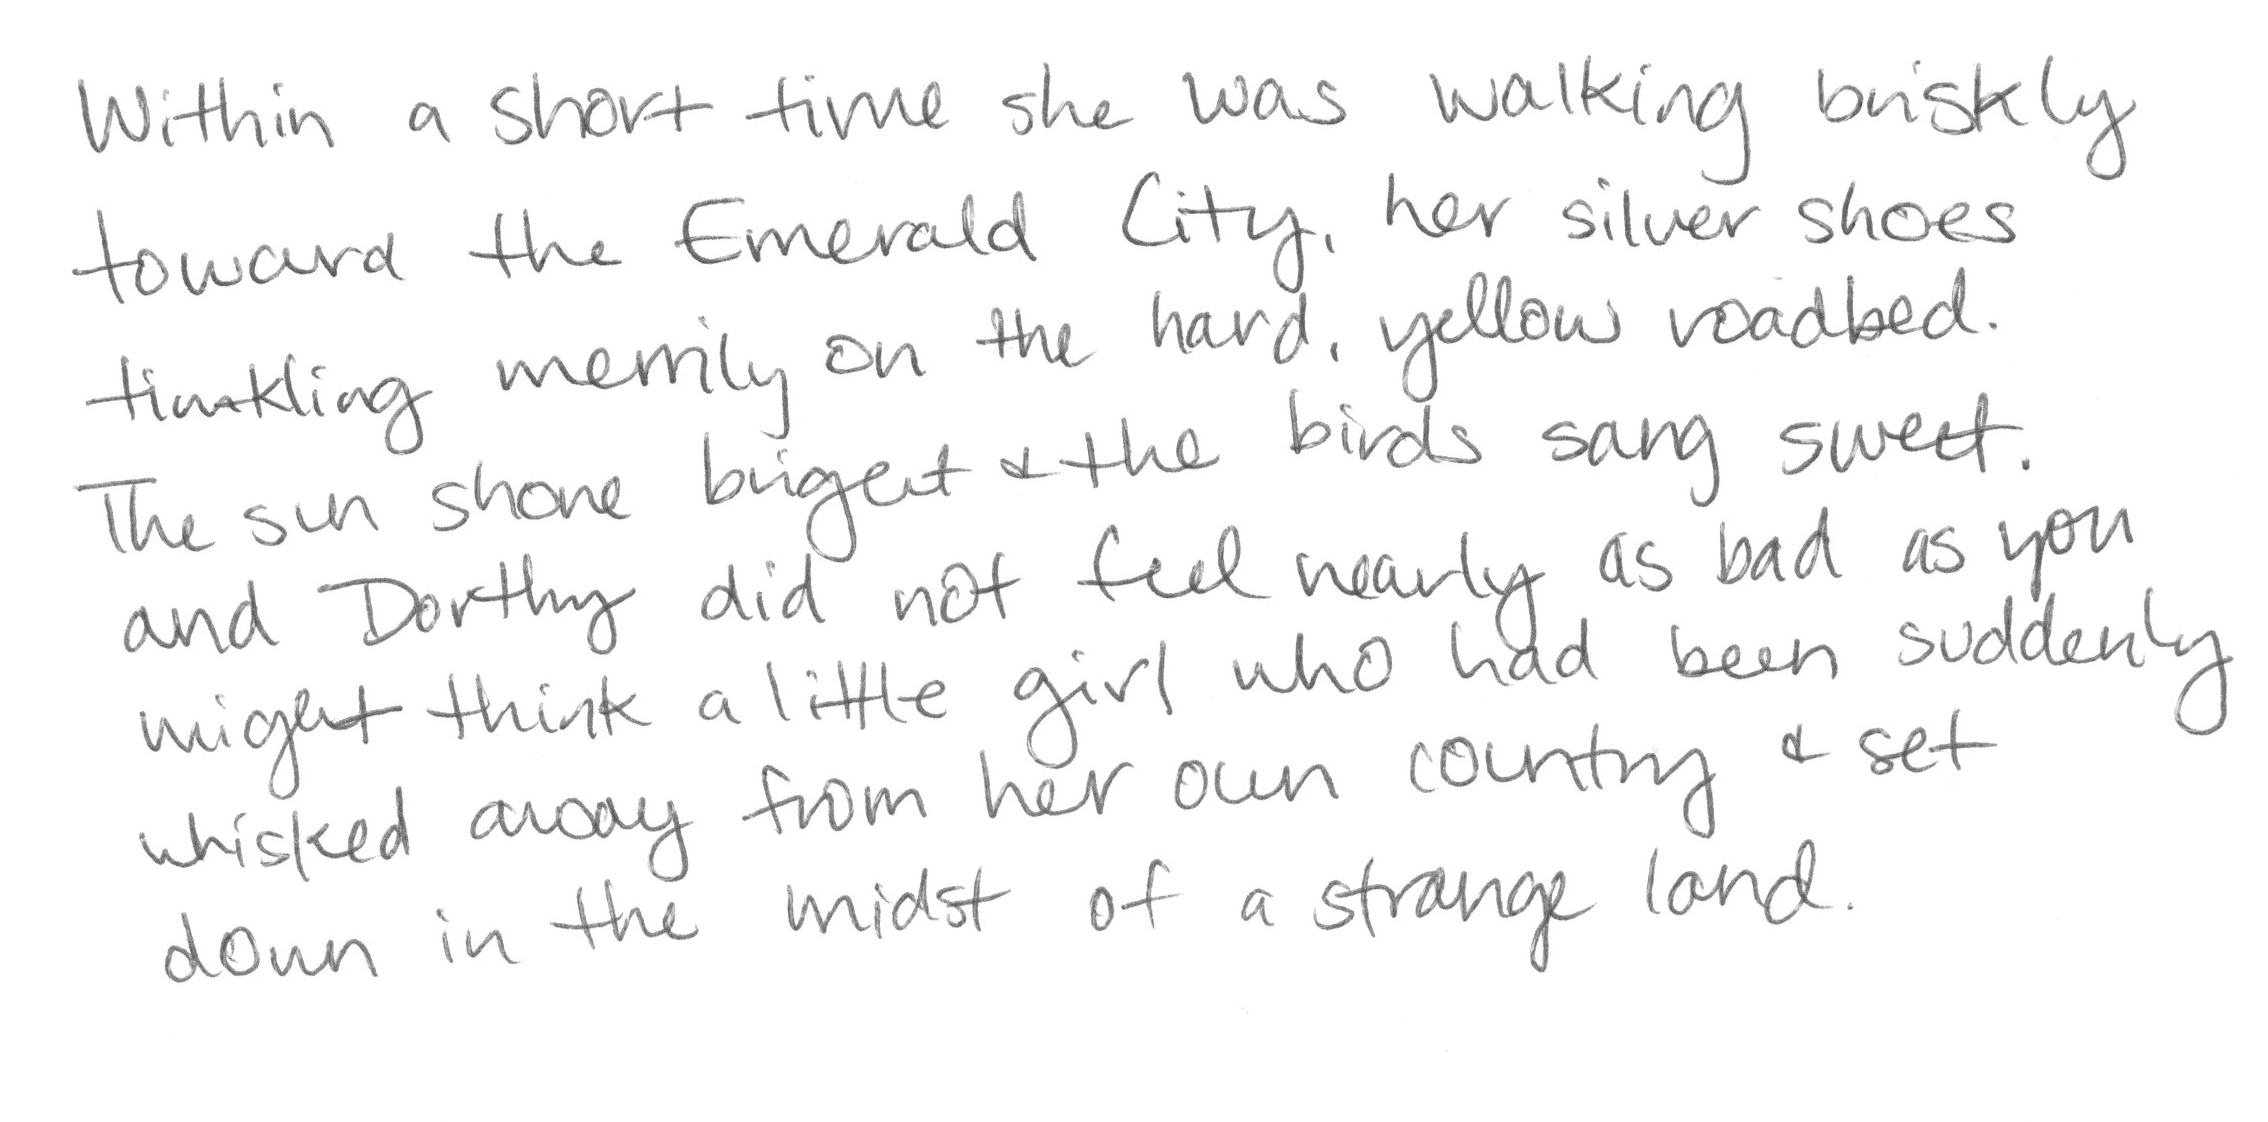 Within a short time she was walking briskly
toward the Emerald City, her silver shoes
tinkling merrily on the hard, yellow roadbed.
The sun shone bright & the birds sang sweet.
and Dorthy did not feel nearly as bad as you
might think a little girl who had been suddenly
whisked away from her own country & set
down in the midst of a strange land.